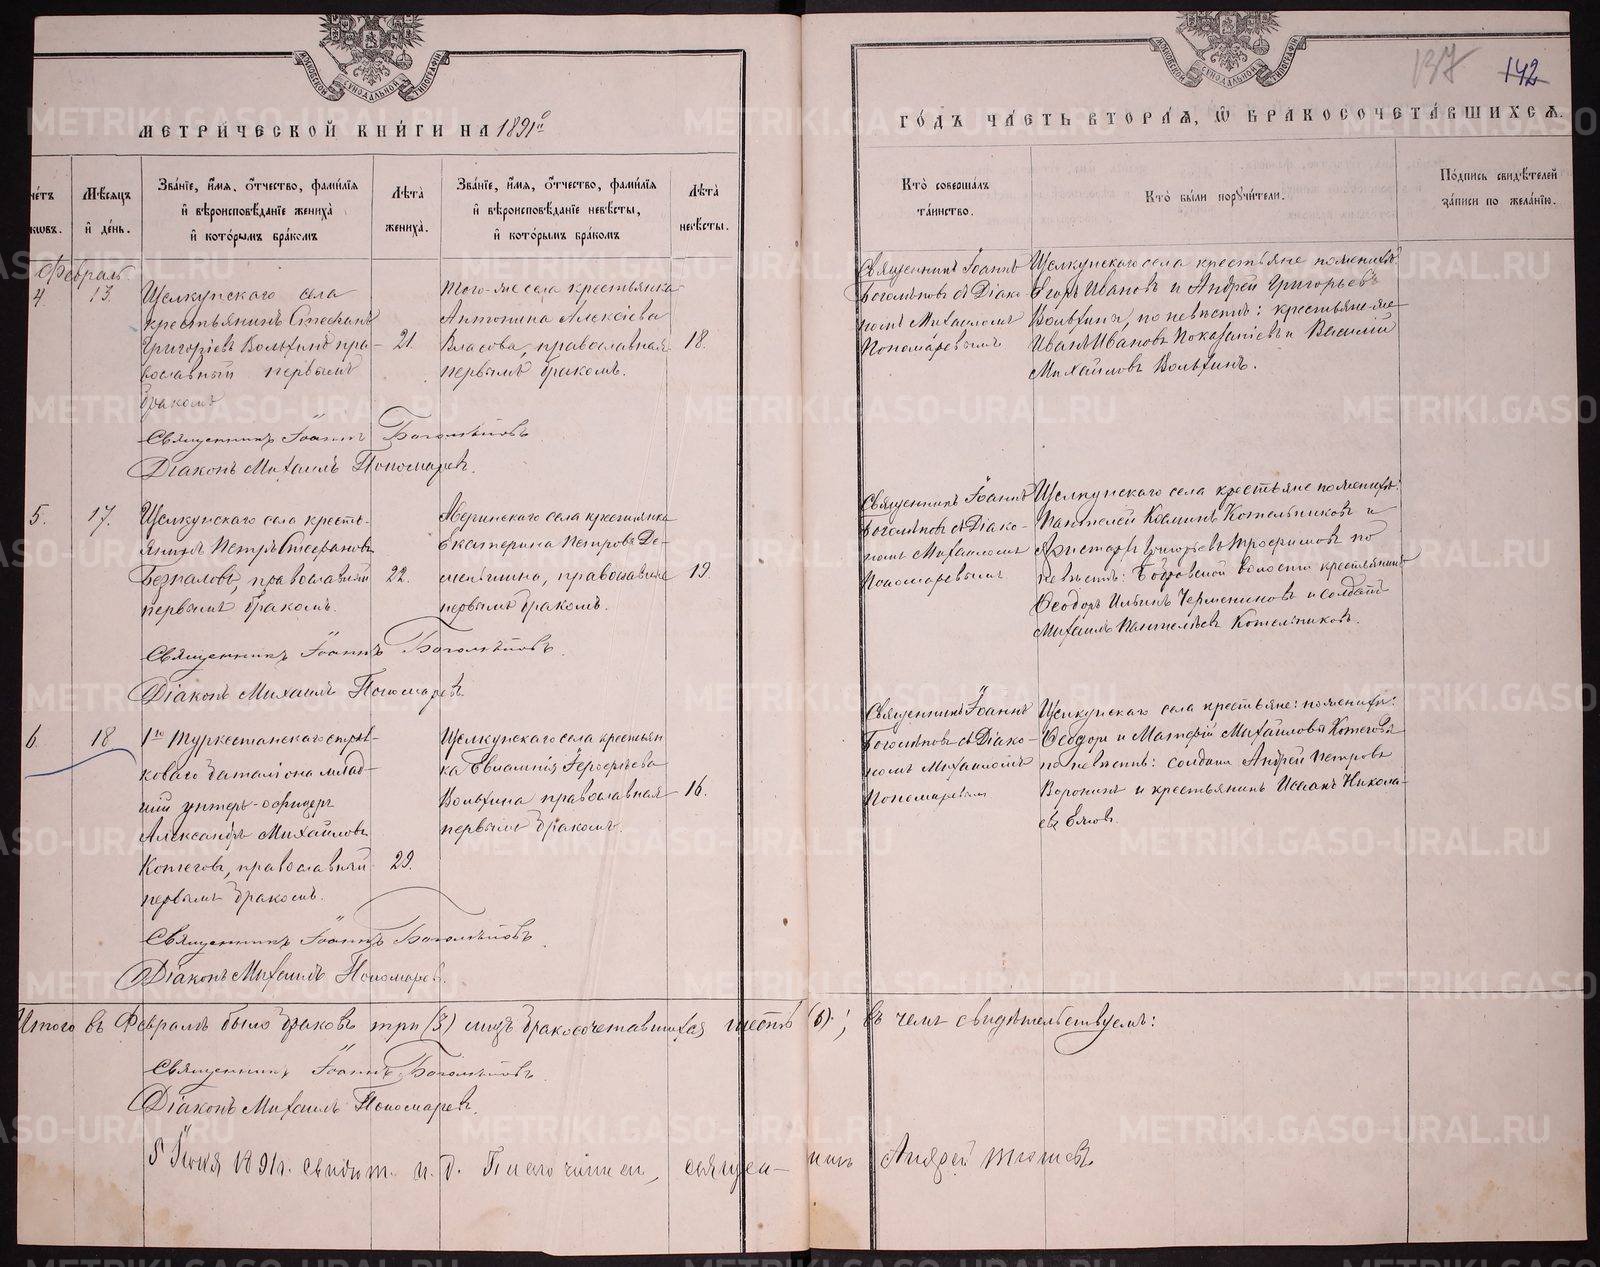 МЕТРИ́ЧЕСКОЙ КНИ́ГИ НА 1891й
ГО́ДЪ ЧА́СТЬ ВТОРА́Я, Ѡ҆ БРАКОСОЧЕТА́ВШИХСЯ.
137 142
Мѣ́сяцъ и҆ де́нь.
Зва́нїе, и҆́мя, ѻ҆́тчество, фами́лїя
и҆ вѣроисповѣ́данїе жениха̀
и҆ кото́рымъ бра́комъ
Лѣта̀ жениха̀.
Зва́нїе, и҆́мя, ѻ҆́тчество, фами́лїя
и҆ вѣроисповѣ́данїе невѣ́сты,
и҆ кото́рымъ бра́комъ
Лѣта̀ невѣ́сты.
Кто̀ соверша́лъ
та́инство.
Кто̀ бы́ли поручи́тели.
По́дпись свидѣ́телей
за́писи по жела́нїю.
Февраль
4. 13.
Щелкунскаго села
крестьянинъ Стефанъ
Григорьевъ Вольхинъ пра-
вославный первымъ
бракомъ
21.
того-же села крестьянка
Антонина Алексіева
Власова, православная
первымъ бракомъ.
18.
Священникъ Іоаннъ
Боголѣповъ съ Діако-
номъ Михаиломъ
Пономаревымъ
Щелкунскаго села крестьяне по женихѣ
Егоръ Ивановъ и Андрей Григорьевъ
Вольхины, по невѣстѣ: крестьяне
Иванъ Ивановъ и Василій
Михайловъ Вольхинъ.
Священникъ Іоаннъ Боголѣповъ
Діаконъ Михаилъ Пономаревъ.
5. 17.
Щелкунскаго села кресть-
янинъ Петръ Стефановъ
Безпаловъ, православный
первымъ бракомъ.
22.
Аверинскаго села крестьянка
Екатерина Петрова Де-
православная
первымъ бракомъ.
19.
Священникъ Іоаннъ
Боголѣповъ съ Діако-
номъ Михаиломъ
Пономаревымъ
Щелкунскаго села крестьяне по женихѣ:
Пантелей Козминъ Котельниковъ и
Аристархъ Григорьевъ Трофимовъ по
невѣстѣ: волости крестьянинъ
Ѳеодоръ Ильинъ и солдатъ
Михаилъ Пантелѣевъ Котельниковъ.
Священникъ Іоаннъ Боголѣповъ.
Діаконъ Михаилъ Пономаревъ
6. 18
1го Туркестанскаго стрѣл-
коваго баталіона млад-
шій унтеръ-офицеръ
Александръ Михайловъ
Котеговъ, православный
первымъ бракомъ.
29.
Щелкунскаго села крестьян
ка Евлампія
Вольхина православная
первымъ бракомъ.
16.
Священникъ Іоаннъ
Боголѣповъ съ Діако-
номъ Михаиломъ
Пономаревымъ
Щелкунскаго села крестьяне: по женихѣ:
Ѳеодоръ и Матѳій Михайловы Котеговы
по невѣстѣ: солдатъ Андрей Петровъ
Воронинъ и крестьянинъ Исаакъ Никола-
евъ
Священникъ Іоаннъ Боголѣповъ.
Діаконъ Михаилъ Пономаревъ.
Итого въ Февралѣ было браковъ три (3) лицъ бракосочетавшихся шесть (6); въ чемъ свидѣтельствуемъ:
Священникъ Іоаннъ Боголѣповъ.
Діаконъ Михаилъ Пономаревъ.
5 Іюня 1891г. свидѣт. и. д. Благочиннаго, священ-
никъ Андрей